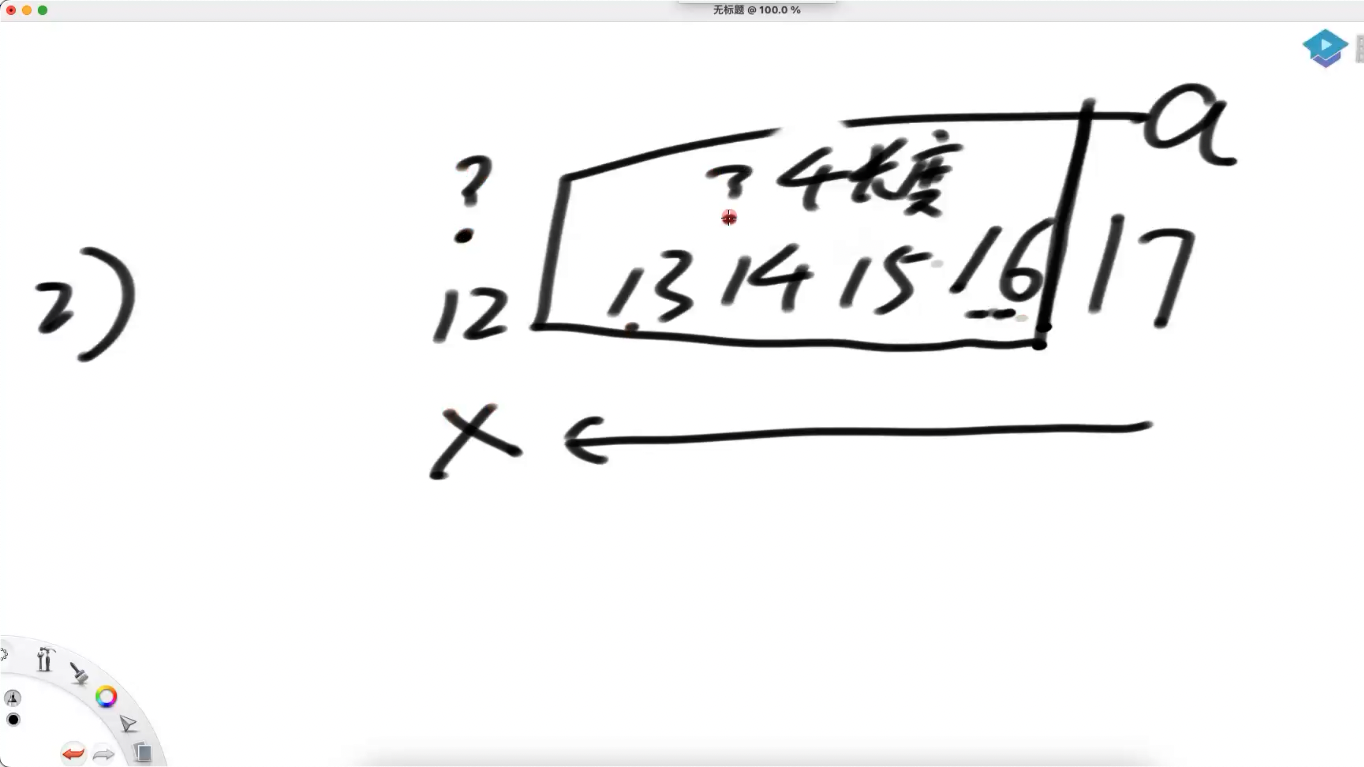 无标题 @ 100.0 %
a
? ? 4长度
2) 12 13 14 15 16 17
X